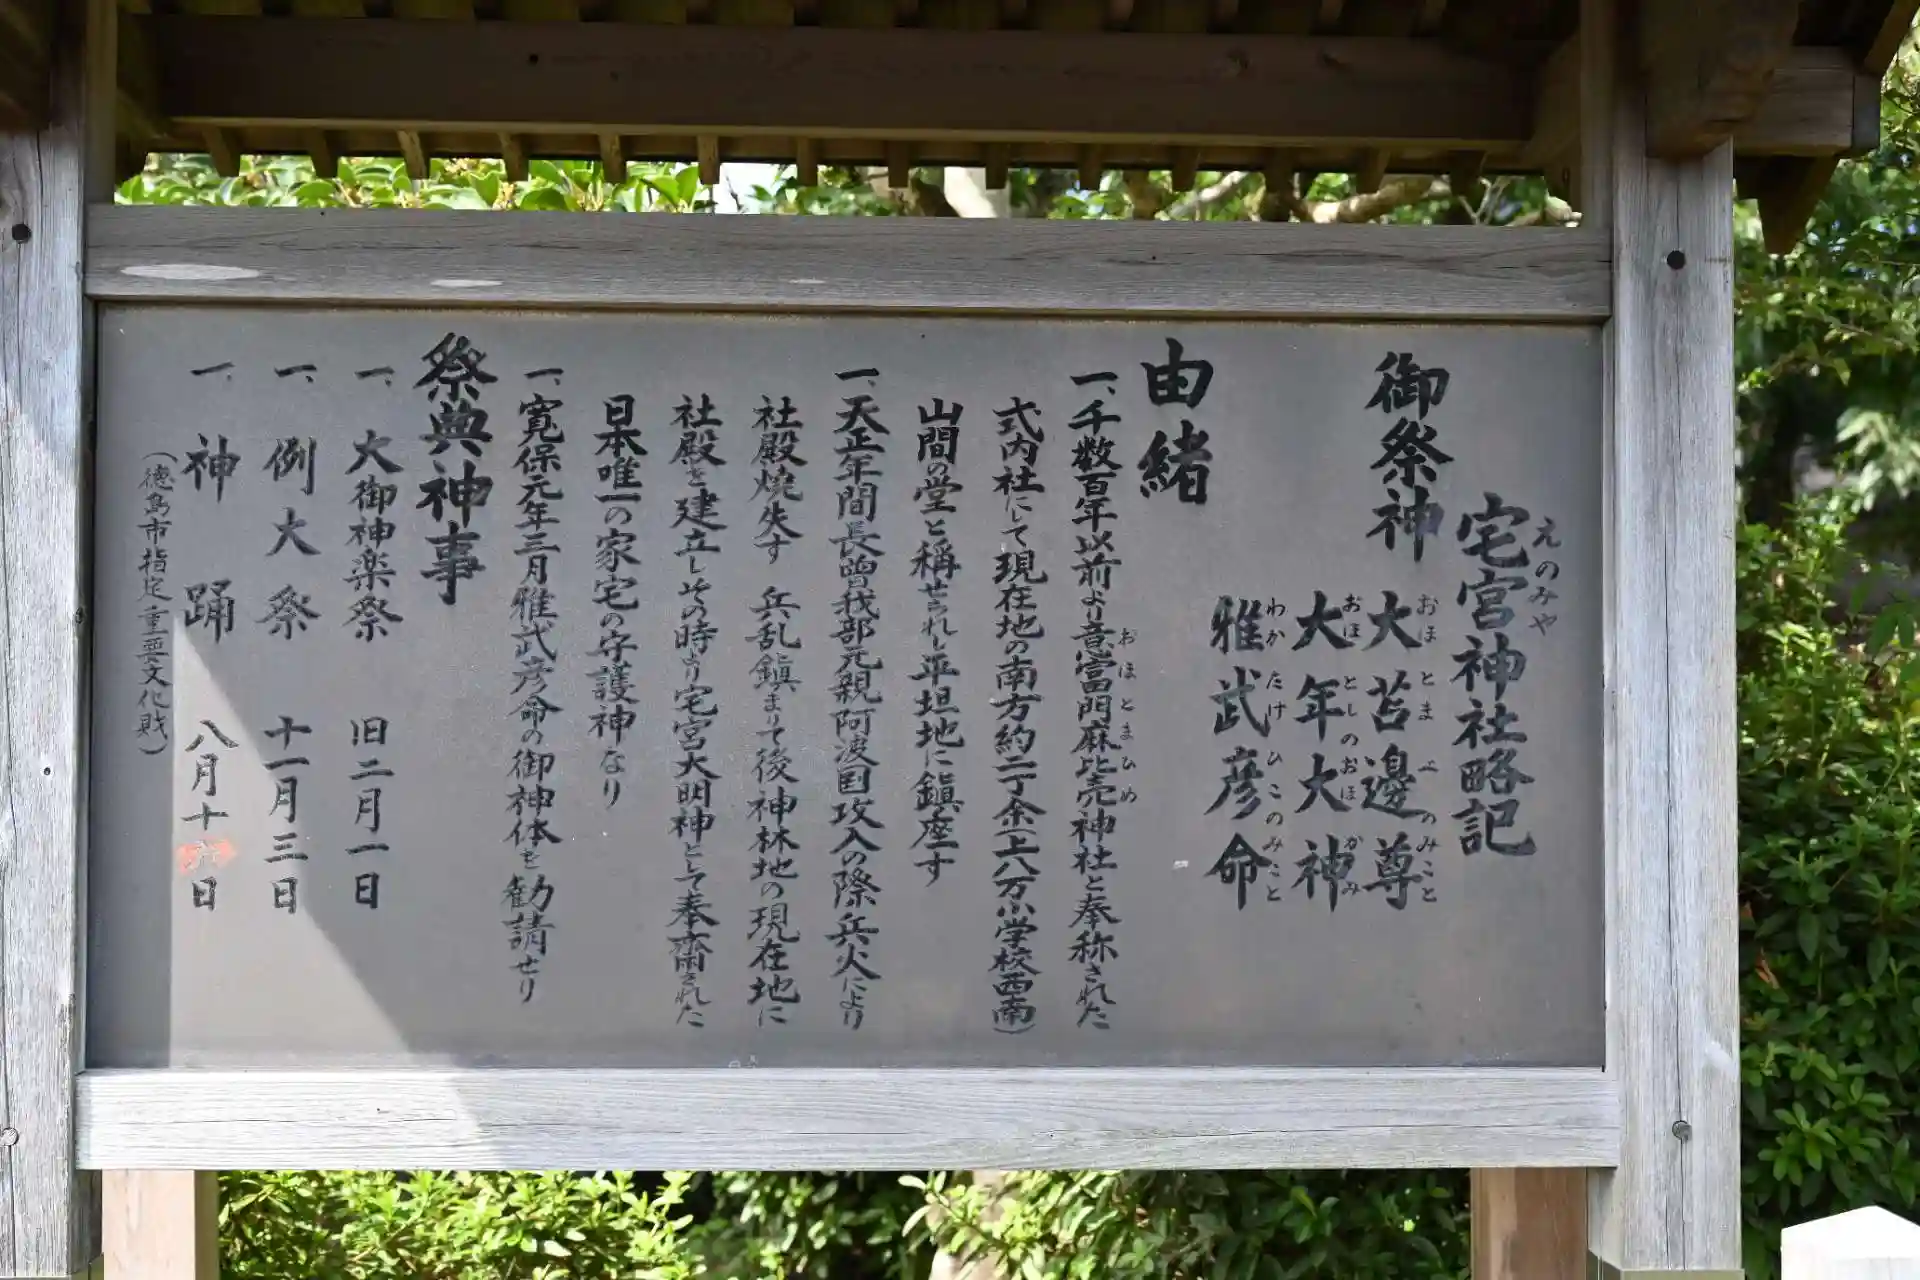 宅宮神社略記
えのみや
御祭神
大苫邊尊
おほとまべのみこと
大年大神
おほとしのおほかみ
雅武彦命
わかたけひこのみこと
由緒
一、千数百年以前より意富門麻比売神社と奉称された
おほとまひめ
式内社にして現在地の南方約二丁余(上八万小学校西南)
山間の堂と稱せられし平坦地に鎮座す
一、天正年間長曽我部元親阿波国攻入の際兵火により
社殿焼失す 兵乱鎮まりて後神林地の現在地に
社殿を建立し其の時より宅宮大明神として奉齋された
日本唯一の家宅の守護神なり
一、寛保元年三月雅武彦命の御神体を勧請せり
祭典神事
一、大御神楽祭 旧二月一日
一、例大祭 十一月三日
一、神踊 八月十六日
(徳島市指定重要文化財)